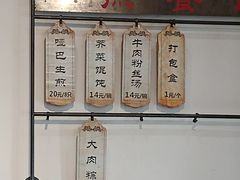 哑巴生煎
20元/8只
荠菜馄饨
14元/碗
牛肉粉丝汤
14元/碗
打包盒
1元/个
大肉粽